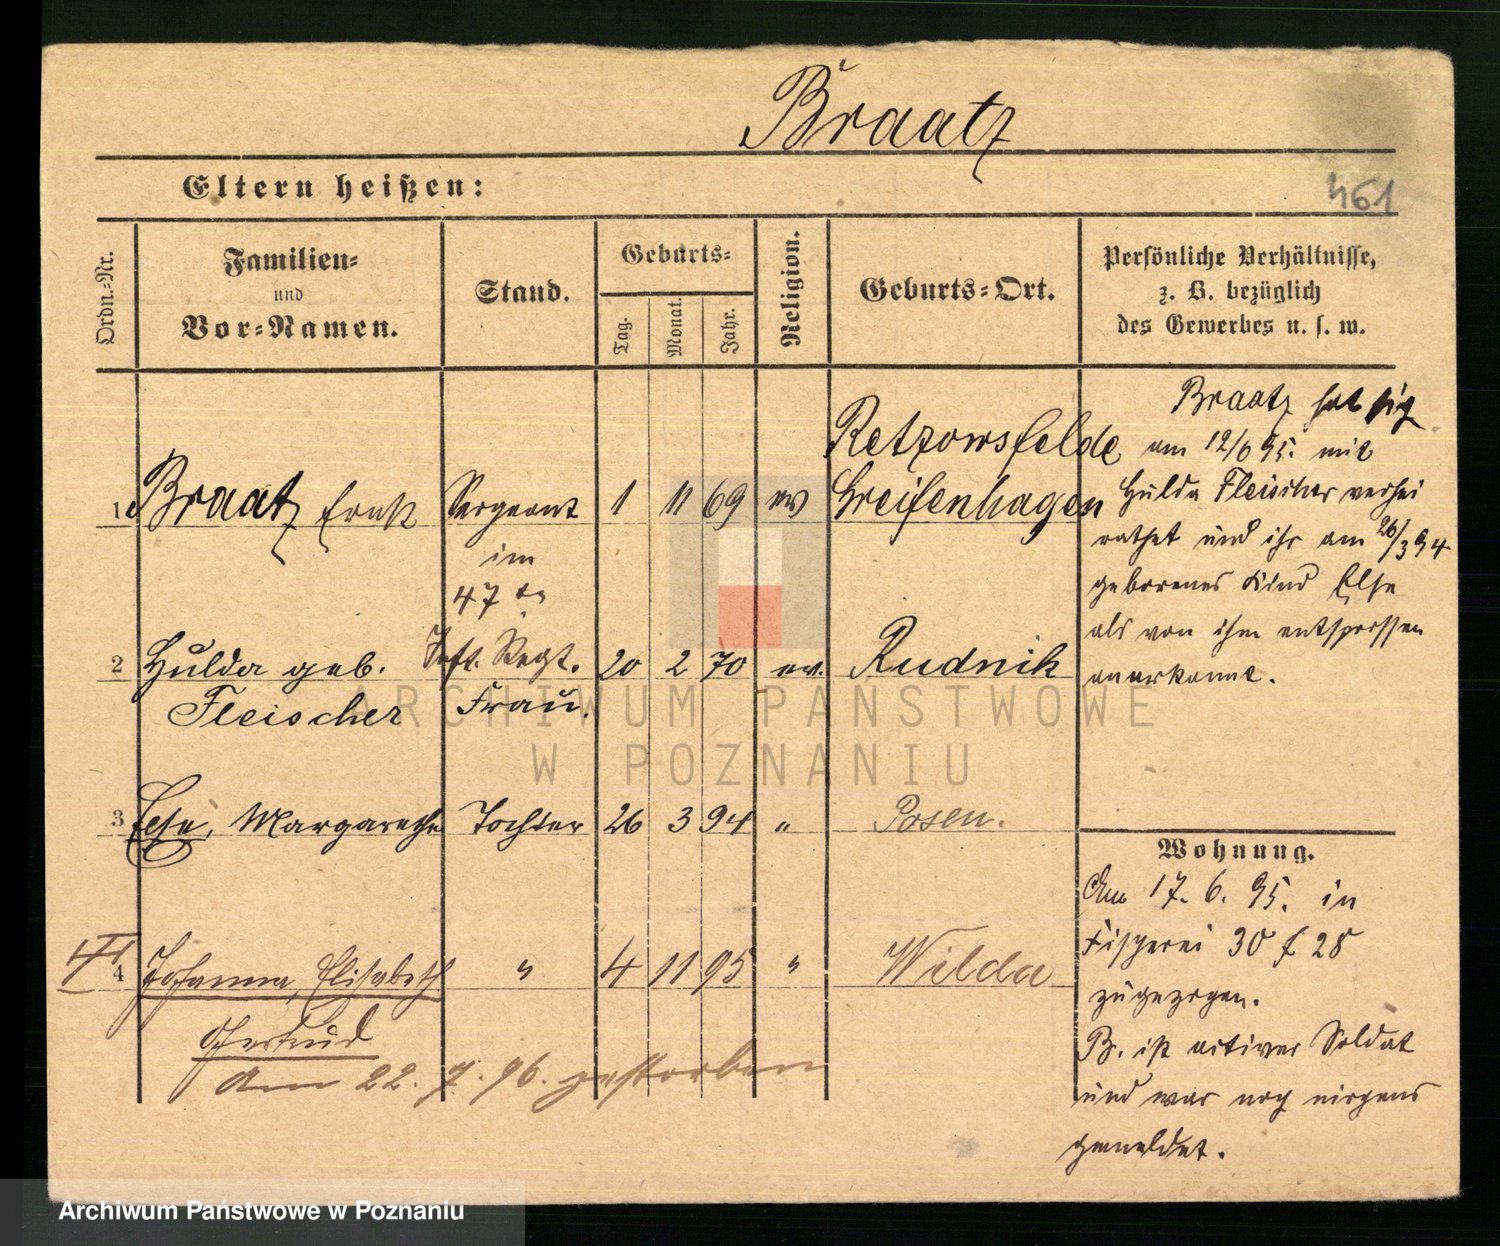 Braatz
Eltern heißen:
461
Ordn.-Nr.
Familien-
und
Vor-Namen.
Stand.
Geburts-
Tag.
Monat.
Jahr.
Religion.
Geburts-Ort.
Persönliche Verhältnisse,
z. B. bezüglich
des Gewerbes u. s. w.
1 Braatz Ernst Sergeant 1 11 69 ev Retzowsfelde
Greifenhagen
im
47 tn
2 Hulda geb. Inft. Regt. 20 2 70 ev. Rudnik
Fleischer Frau.
3 Else, Margarethe Tochter 26 3 94 " Posen.
4 Johanna, Elisabeth " 4 11 95 " Wilda
Gertrud
Am 22. 7. 96. gestorben
Braatz hat sich
am 12/6 95. mit
Hulda Fleischer verhei
rathet und ihr am 26/3 94
geborenes Kind Else
als von ihm entsprossen
anerkannt.
Wohnung.
Am 17. 6. 95. in
Fischerei 30 f 28
zugezogen.
B. ist activer Soldat
und war noch nirgens
gemeldet.
ARCHIWUM PAŃSTWOWE
W POZNANIU
Archiwum Państwowe w Poznaniu